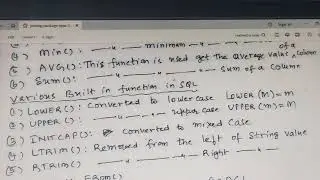 (4) Min(): —"— minimum —"— of a
(5) AVG(): This function is used get the average value, Column
(6) Sum(): —"— Sum of a Column
Various Built in function in SQL
(1) LOWER(): Converted to lower case LOWER(M)=m
(2) UPPER(): —"— Upper case UPPER(m)=M
(3) INITCAP(): Converted to mixed Case
(4) LTRIM(): Removed from the left of String value
(5) RTRIM() —"— Right —"—